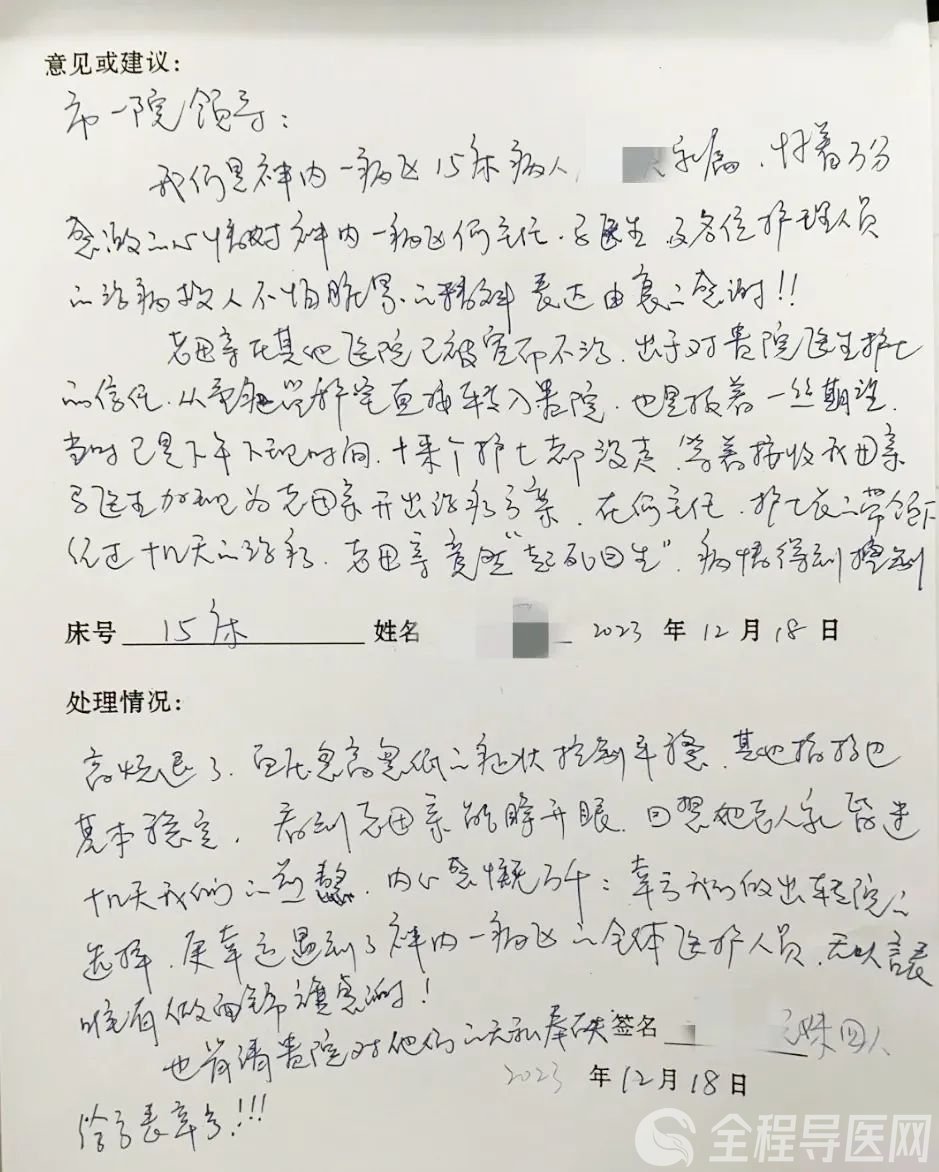 意见或建议：
市一院领导：
我们是神内一病区15床病人 家属，怀着万分
感激的心情对神内一病区何主任、马医生及各位护理人员
的治病救人不怕脏累的精神表达由衷的感谢!!
老母亲在其他医院已被宣布不治，出于对贵院医生护士
的信任，从重症监护室直接转入贵院，也是抱着一丝期望，
当时已是下午下班时间，十来个护士都没走，等着接收我母亲
马医生加班为老母亲开出治疗方案，在何主任、护士长的带领下
经过十几天的治疗，老母亲竟然“起死回生”，病情得到控制
床号 15床 姓名 2023 年 12 月 18 日
处理情况：
高烧退了，血压忽高忽低的症状控制平稳，其他指标也
基本稳定，看到老母亲能睁开眼，回想她老人家昏迷
十几天我们的煎熬，内心感慨万千：幸亏我们做出转院的
选择，更幸运遇到了神内一病区的全体医护人员，无以言表
唯有做面锦旗感谢！
也肯请贵院对他们的无私奉献 签名 兄妹四人
2023 年 12 月 18 日
给予表彰!!!
全程导医网